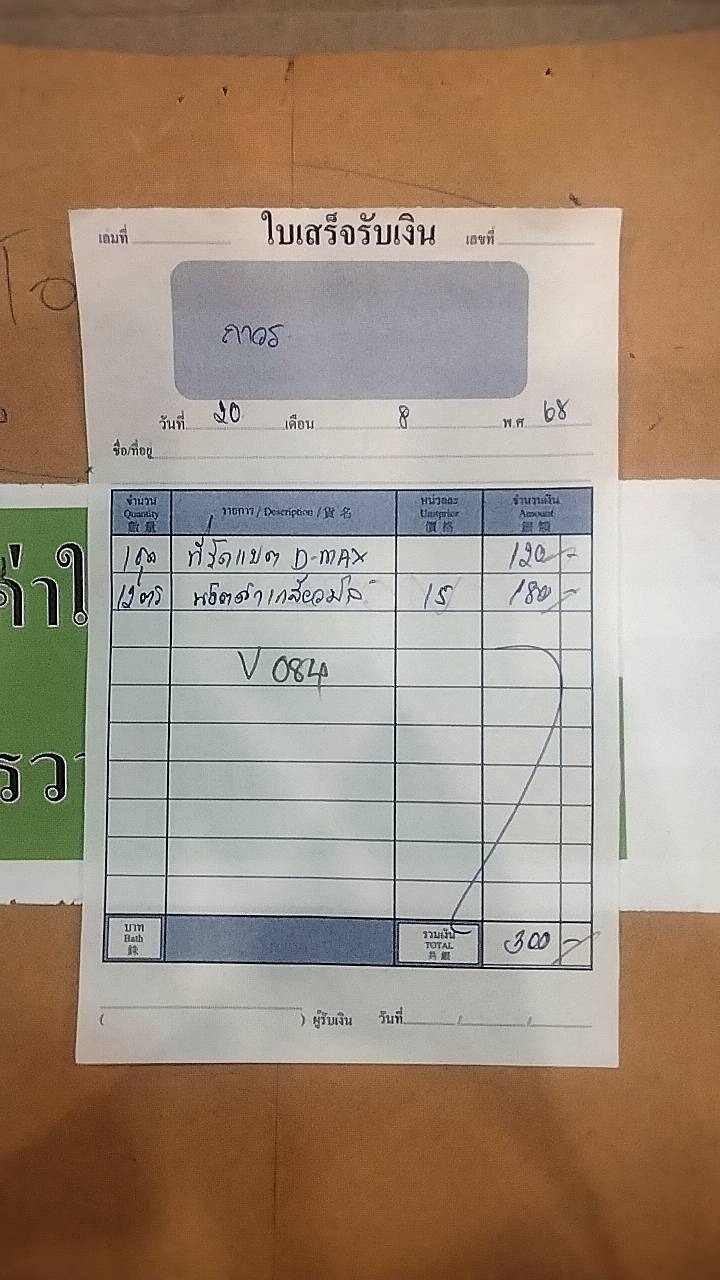 เล่มที่ ใบเสร็จรับเงิน เลขที่
ถาวร
วันที่ 20 เดือน 8 พ.ศ. 68
ชื่อ/ที่อยู่
จำนวน รายการ / Description / 貨名 หน่วยละ จำนวนเงิน
Quantity Unitprice Amount
數量 價格 銀額
1 ชุด ที่รัดแบต D-MAX 120 -
12 ตัว น๊อตดำเกลียวมิล 15 180 -
V 084
บาท รวมเงิน 300 -
Bath TOTAL
銖 共銀
( ) ผู้รับเงิน วันที่ / /
ค่าใ
รวา